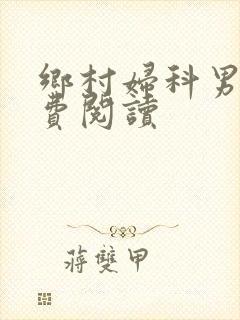 鄉村婦科男
費閱讀
蔣雙甲